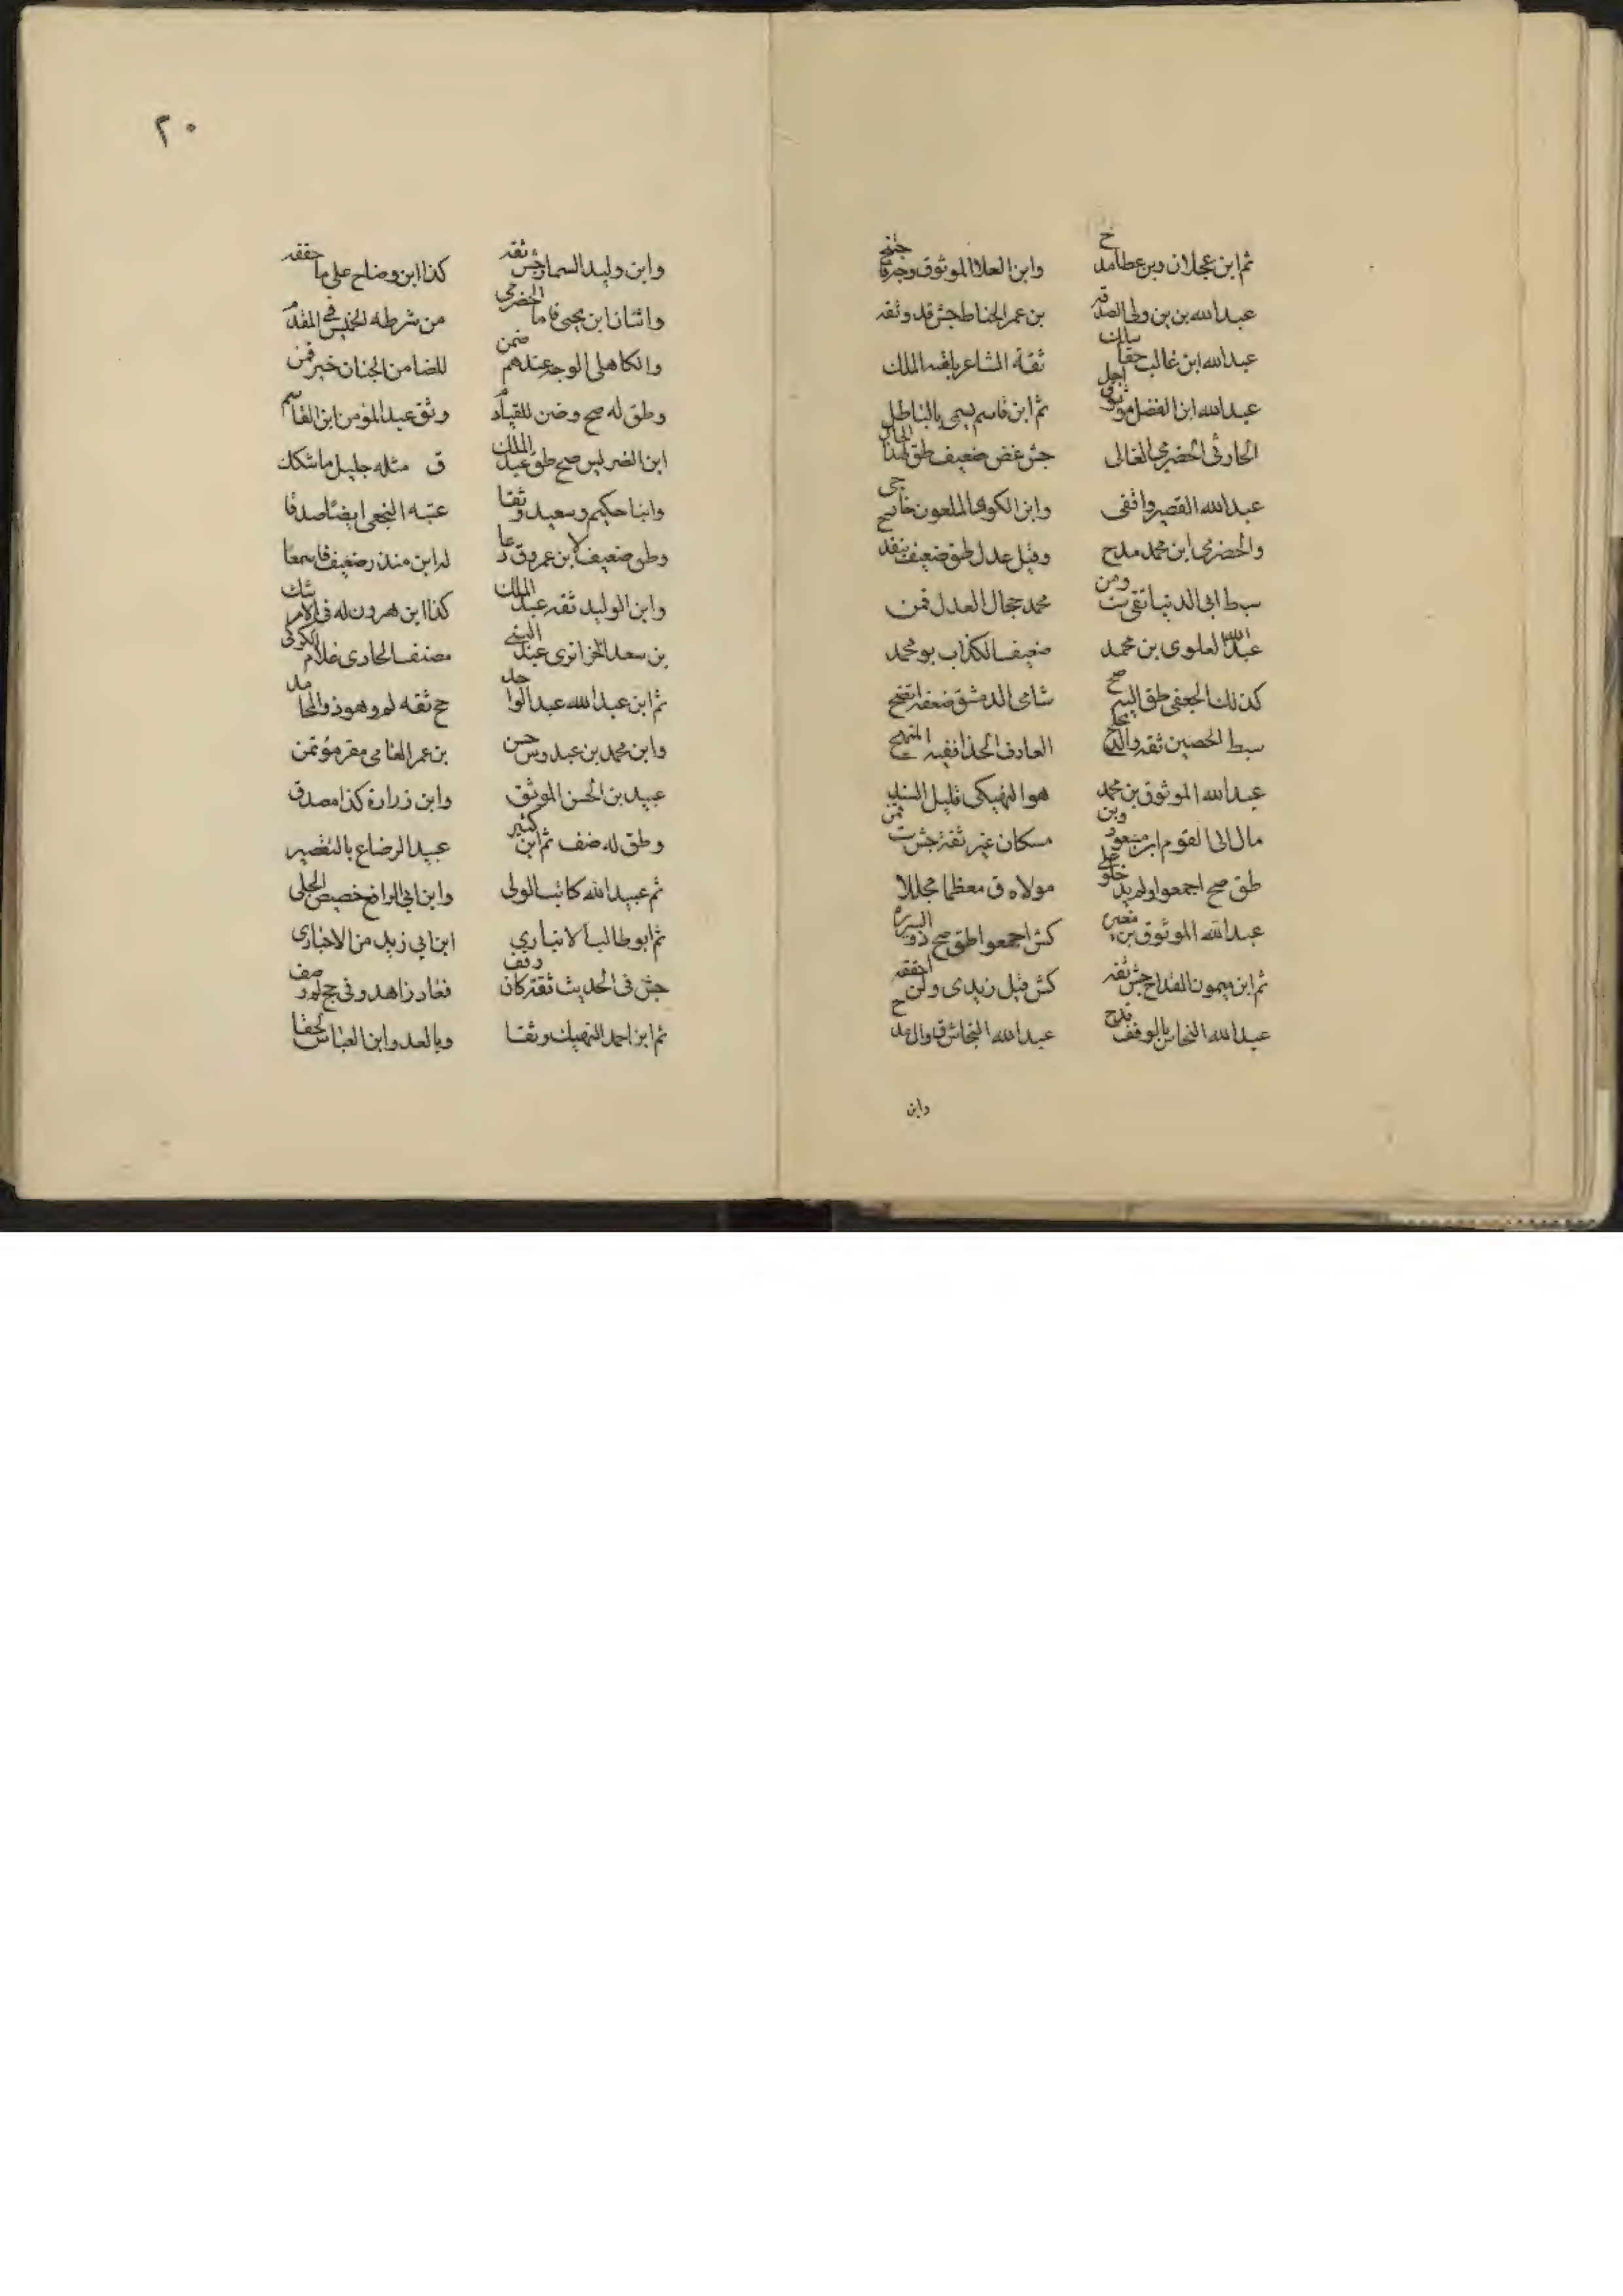 ثم ابن عجلان وبن عطا مدح وابن العلا الموثوق وجه
عبدالله بن بن ولى الصدقه بن عمر الحناط جش قد وثقه
عبدالله ابن غالب حقا ثقة الشاعر يلقنه الملك
عبدالله ابن الفضل موثوق ثم ابن قاسم يسمى بالباطل
الحارثى الحضرمى الغالى جش غض ضعيف طق لهذا الحال
عبدالله القصير واقفى وابن الكوى الملعون خارجى
والحضرمى ابن محمد مدح وقيل عدل طق ضعيف
سبط ابى الدنيا تقى ومن محمد حجال العدل فمن
عبدالله العلوى بن محمد ضعيف الكذاب بو محمد
كذلك الجعفى طق شامى الدمشقى ضعفه اتضح
سبط الحصين ثقه والبجلى العارف الحذا فقيه
عبدالله الموثوق بن محمد هو النهيكى قليل السند
مال الى القوم ابن مسعود وبن مسكان غير ثقة جش ثبت فمن
طق صح اجمعوا ولم يدخل على مولاه ق معظما مجللا
عبدالله الموثوق بن مغيره كش اجمعوا طق صح ذو السيره
ثم ابن ميمون القداح جش ثقه كش قيل زيدى ولن احققه
عبدالله النخاس بالوقف قدح عبدالله النجاشى ق وال مدح
وابن
٢٠
وابن وليد السمار جش ثقه كذا ابن وضاح على ما حققه
واثنان ابن يحيى فاما الحضرمى من شرطه الخميس فى المقدم
والكاهلى الوجه عندهم ضمن للضامن الجنان خير فمن
وطق له صح وضن للقيام وثق عبدالمؤمن ابن القاسم
ابن الضر ليس صح طق عبدالملك ق مثله جليل ما شكك
وابنا حكيم وسعيد وثقا عتبه النخعى ايضا صدقا
وطق ضعيف لابن عمرو ق دعا له ابن منذر ضعيف فاسمعا
وابن الوليد ثقه عبدالملك كذا ابن هرون له فى الامر شك
بن سعد الخزانزى عبدالنبى مصنف الحاوى غلام الكركى
ثم ابن عبدالله عبدالواحد جح ثقه لم وهو ذو المحامد
وابن محمد بن عبدوس حسن بن عمر الفامى مقر مؤتمن
عبيد بن الحسن الموثق وابن زرارة كذا مصدق
وطق له ضف ثم ابن كثير عبيد الرضاع بالتقصير
ثم عبيدالله كاتب الولى وابن ابى الرافع خصيص الجلى
ثم ابو طالب الانبارى ابن ابى زيد من الاخبارى
جش فى الحديث ثقة كان وقف فعاد زاهد وفى جح لم وصف
ثم ابن احمد النهيك وثقا وبالعدو ابن العباس الحقا